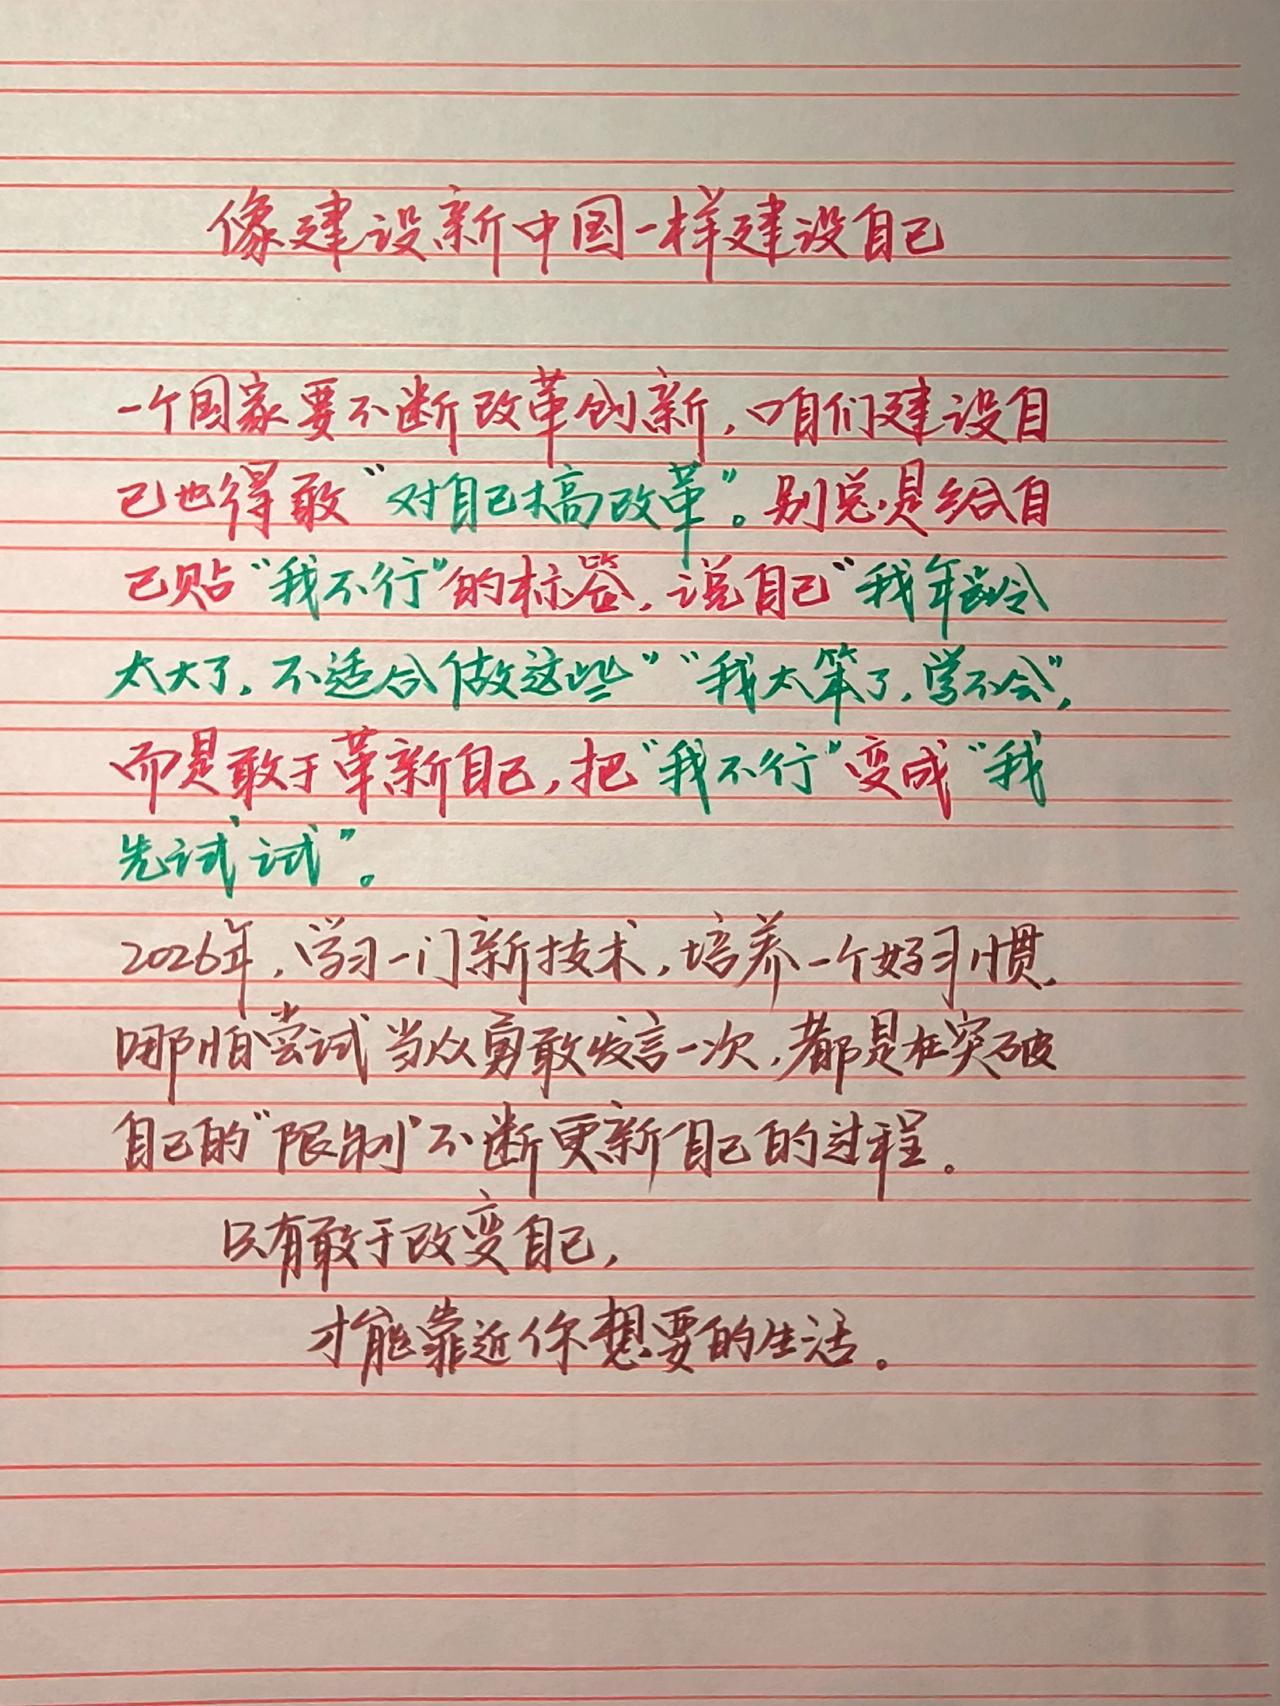 像建设新中国一样建设自己
一个国家要不断改革创新，咱们建设自
己也得敢“对自己搞改革”。别总是给自
己贴“我不行”的标签，说自己“我年龄
太大了，不适合做这些”“我太笨了，学不会”，
而是敢于革新自己，把“我不行”变成“我
先试试”。
2026年，学习一门新技术，培养一个好习惯，
哪怕尝试当众勇敢发言一次，都是在突破
自己的“限制”不断更新自己的过程。
只有敢于改变自己，
才能靠近你想要的生活。